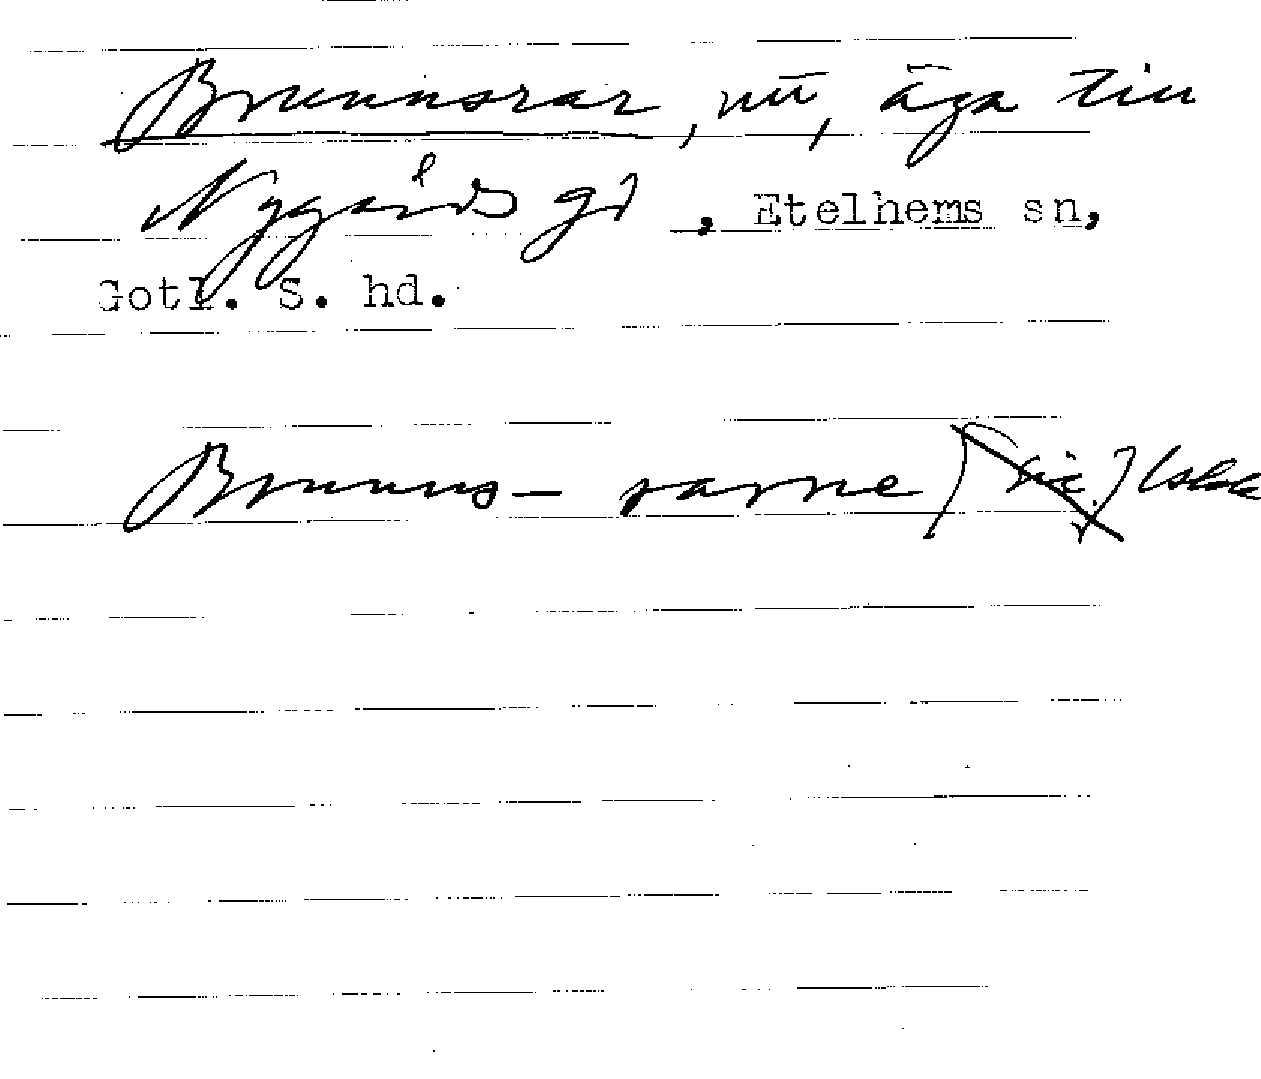 Brunnsrar, nu, äga till
Nygårds gd, Etelhems sn,
Gotl. S. hd.
Brunns-rarne